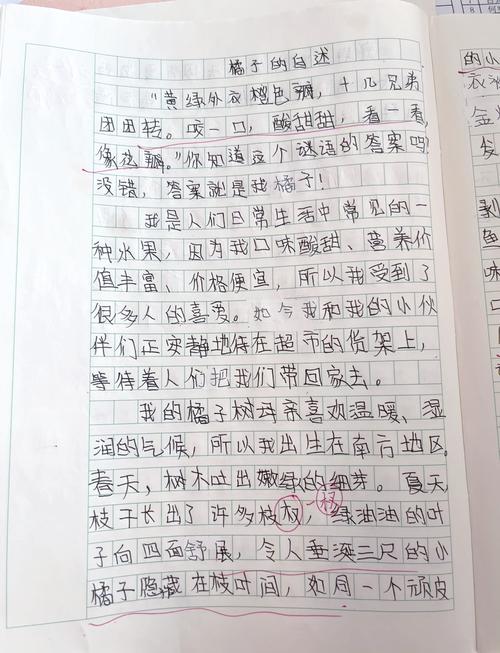 橘子的自述
“黄绿外衣橙色瓣，十几兄弟
团团转。咬一口，酸甜甜，看一看，
像花瓣。”你知道这个谜语的答案吗？
没错，答案就是我橘子！
我是人们日常生活中常见的一
种水果，因为我口味酸甜、营养价
值丰富、价格便宜，所以我受到了
很多人的喜爱。如今我和我的小伙
伴们正安静地待在超市的货架上，
等待着人们把我们带回家去。
我的橘子树母亲喜欢温暖、湿
润的气候，所以我出生在南方地区。
春天，树木吐出嫩绿的细芽。夏天，
枝干长出了许多枝，绿油油的叶
子向四面舒展，令人垂涎三尺的小
橘子隐藏在枝叶间，如同一个顽皮
的小
衣
金
发
剥
鱼
的